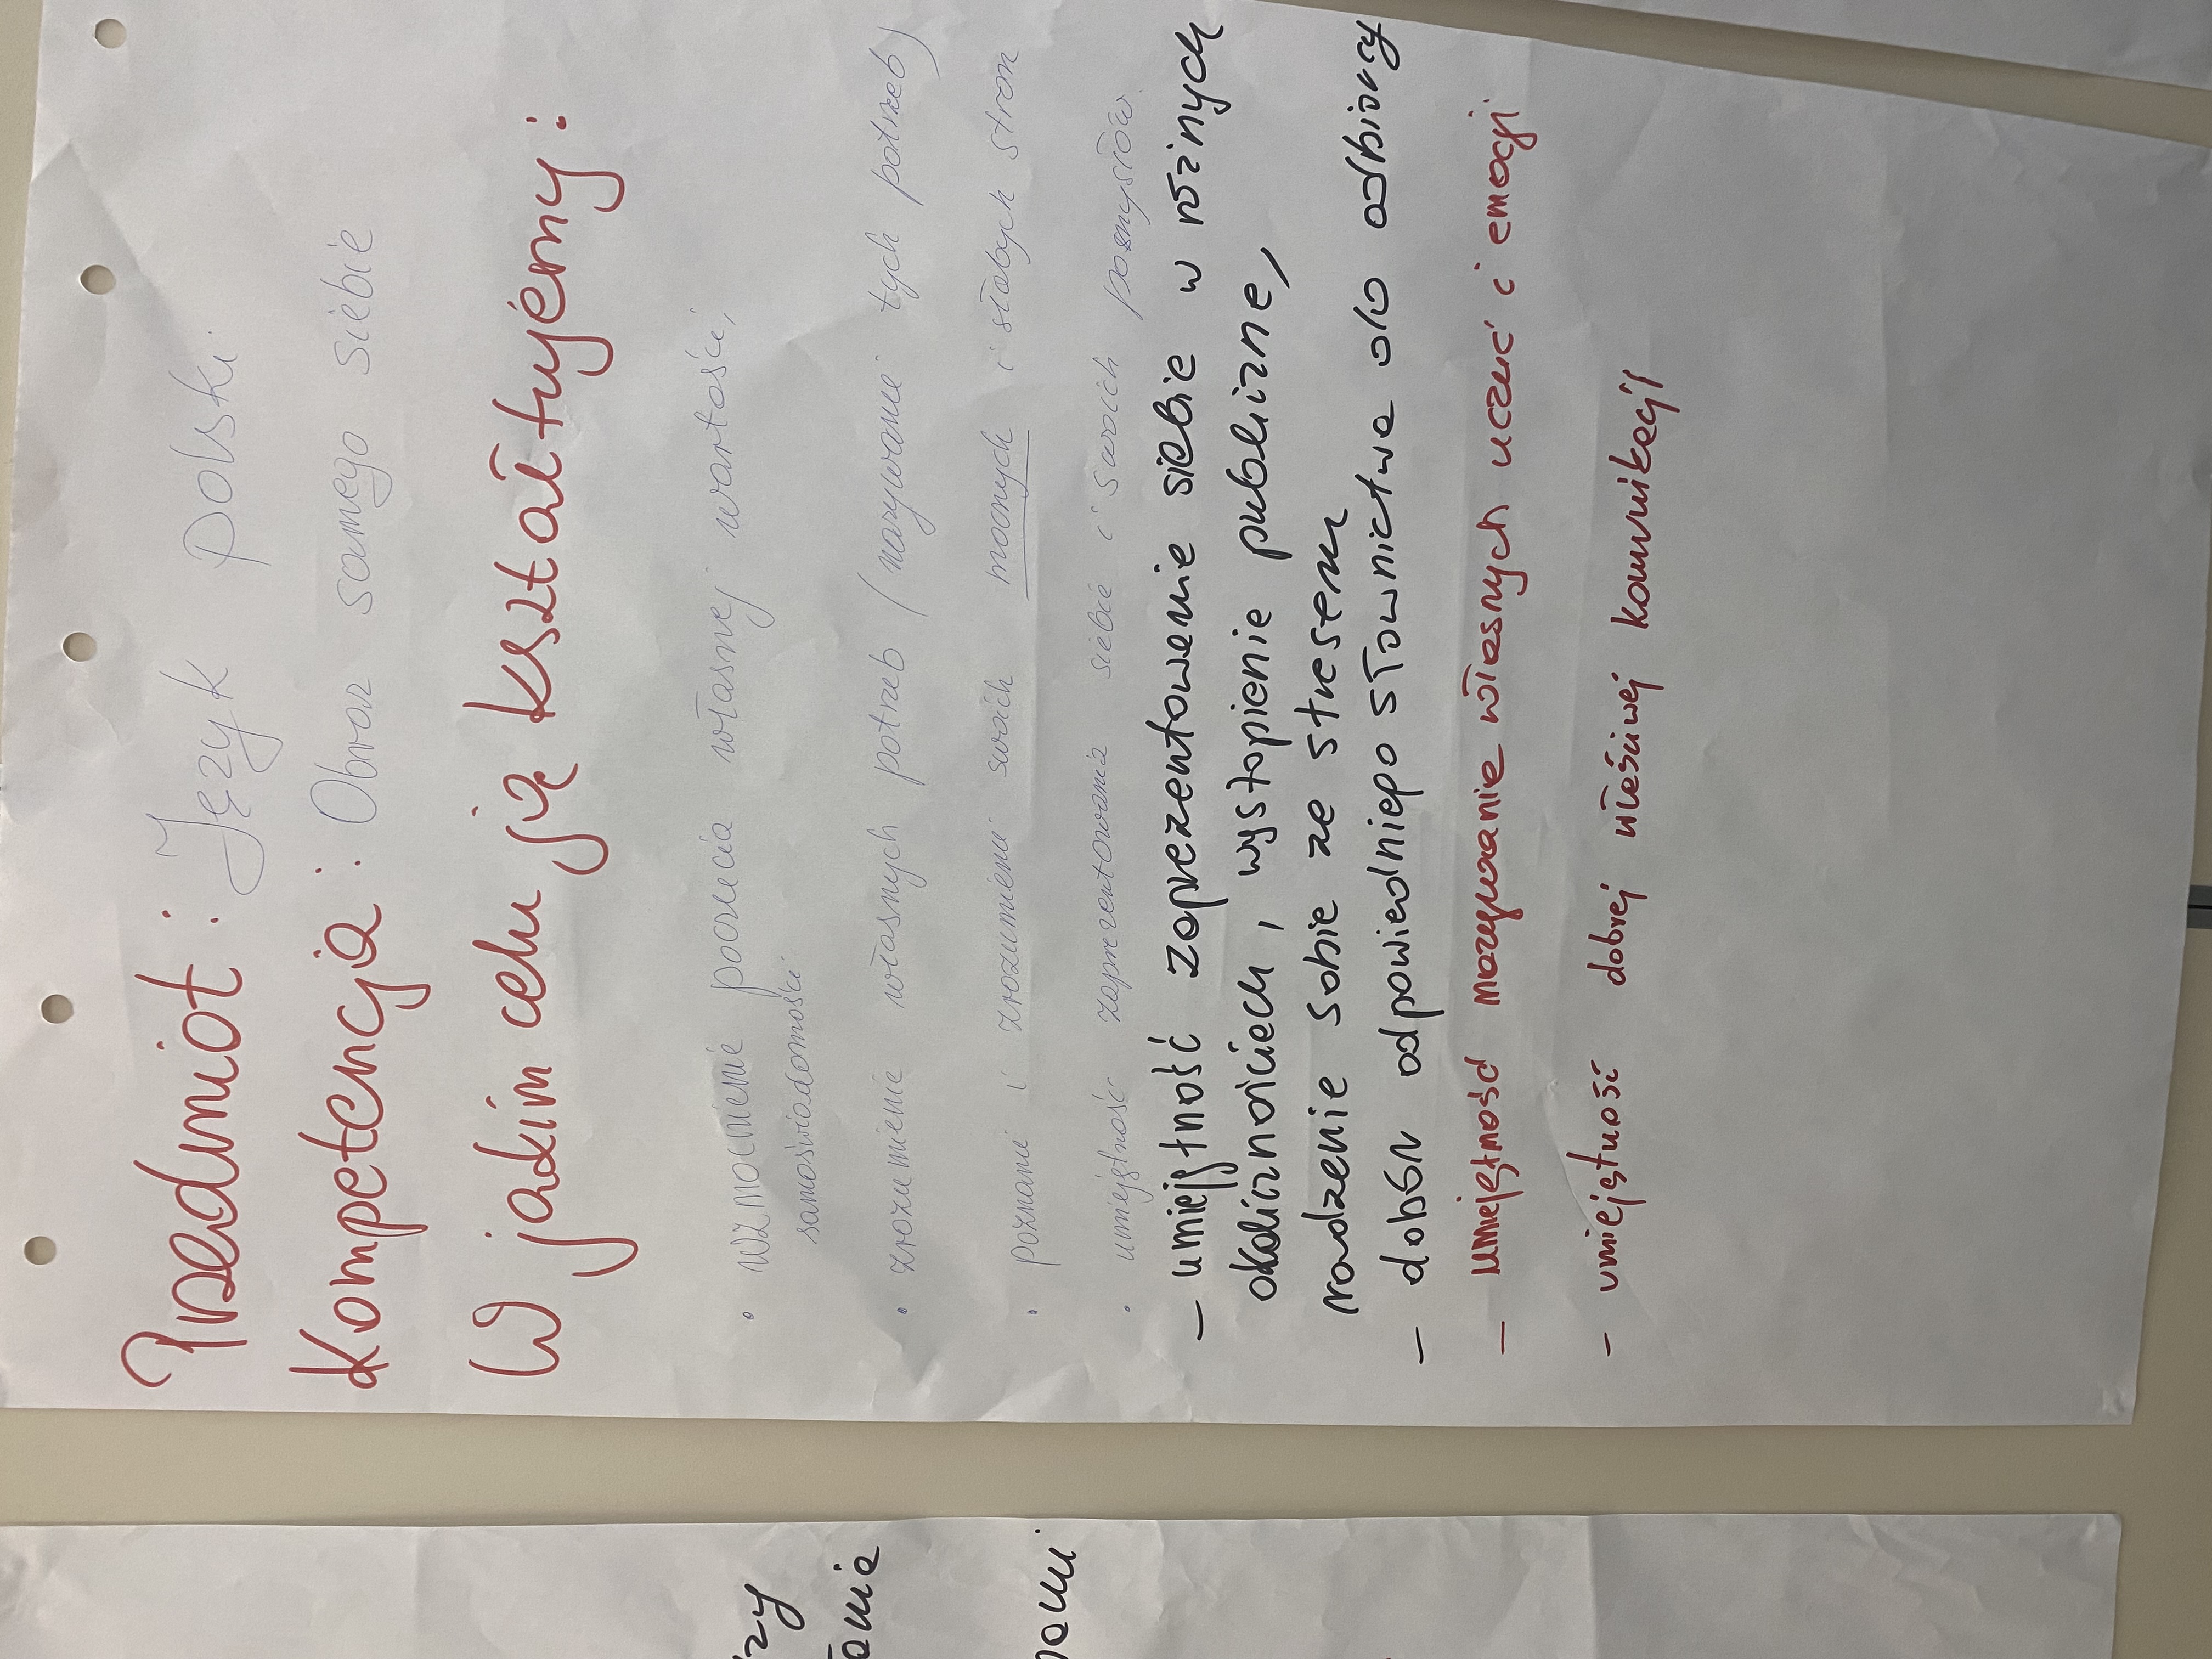 Przedmiot: Język polski
Kompetencja: Obraz samego siebie
W jakim celu ją kształtujemy:
• wzmocnienie poczucia własnej wartości,
samoświadomości
• zrozumienie własnych potrzeb (nazywanie tych potrzeb)
• poznanie i zrozumienie swoich mocnych i słabych stron
• umiejętność zaprezentowania siebie i swoich pomysłów.
– umiejętność zaprezentowanie siebie w różnych
okolicznościach, wystąpienie publiczne,
radzenie sobie ze stresem
– dobór odpowiedniego słownictwa do odbiorcy
– umiejętność nazywanie własnych uczuć i emocji
– umiejętność dobrej właściwej komunikacji